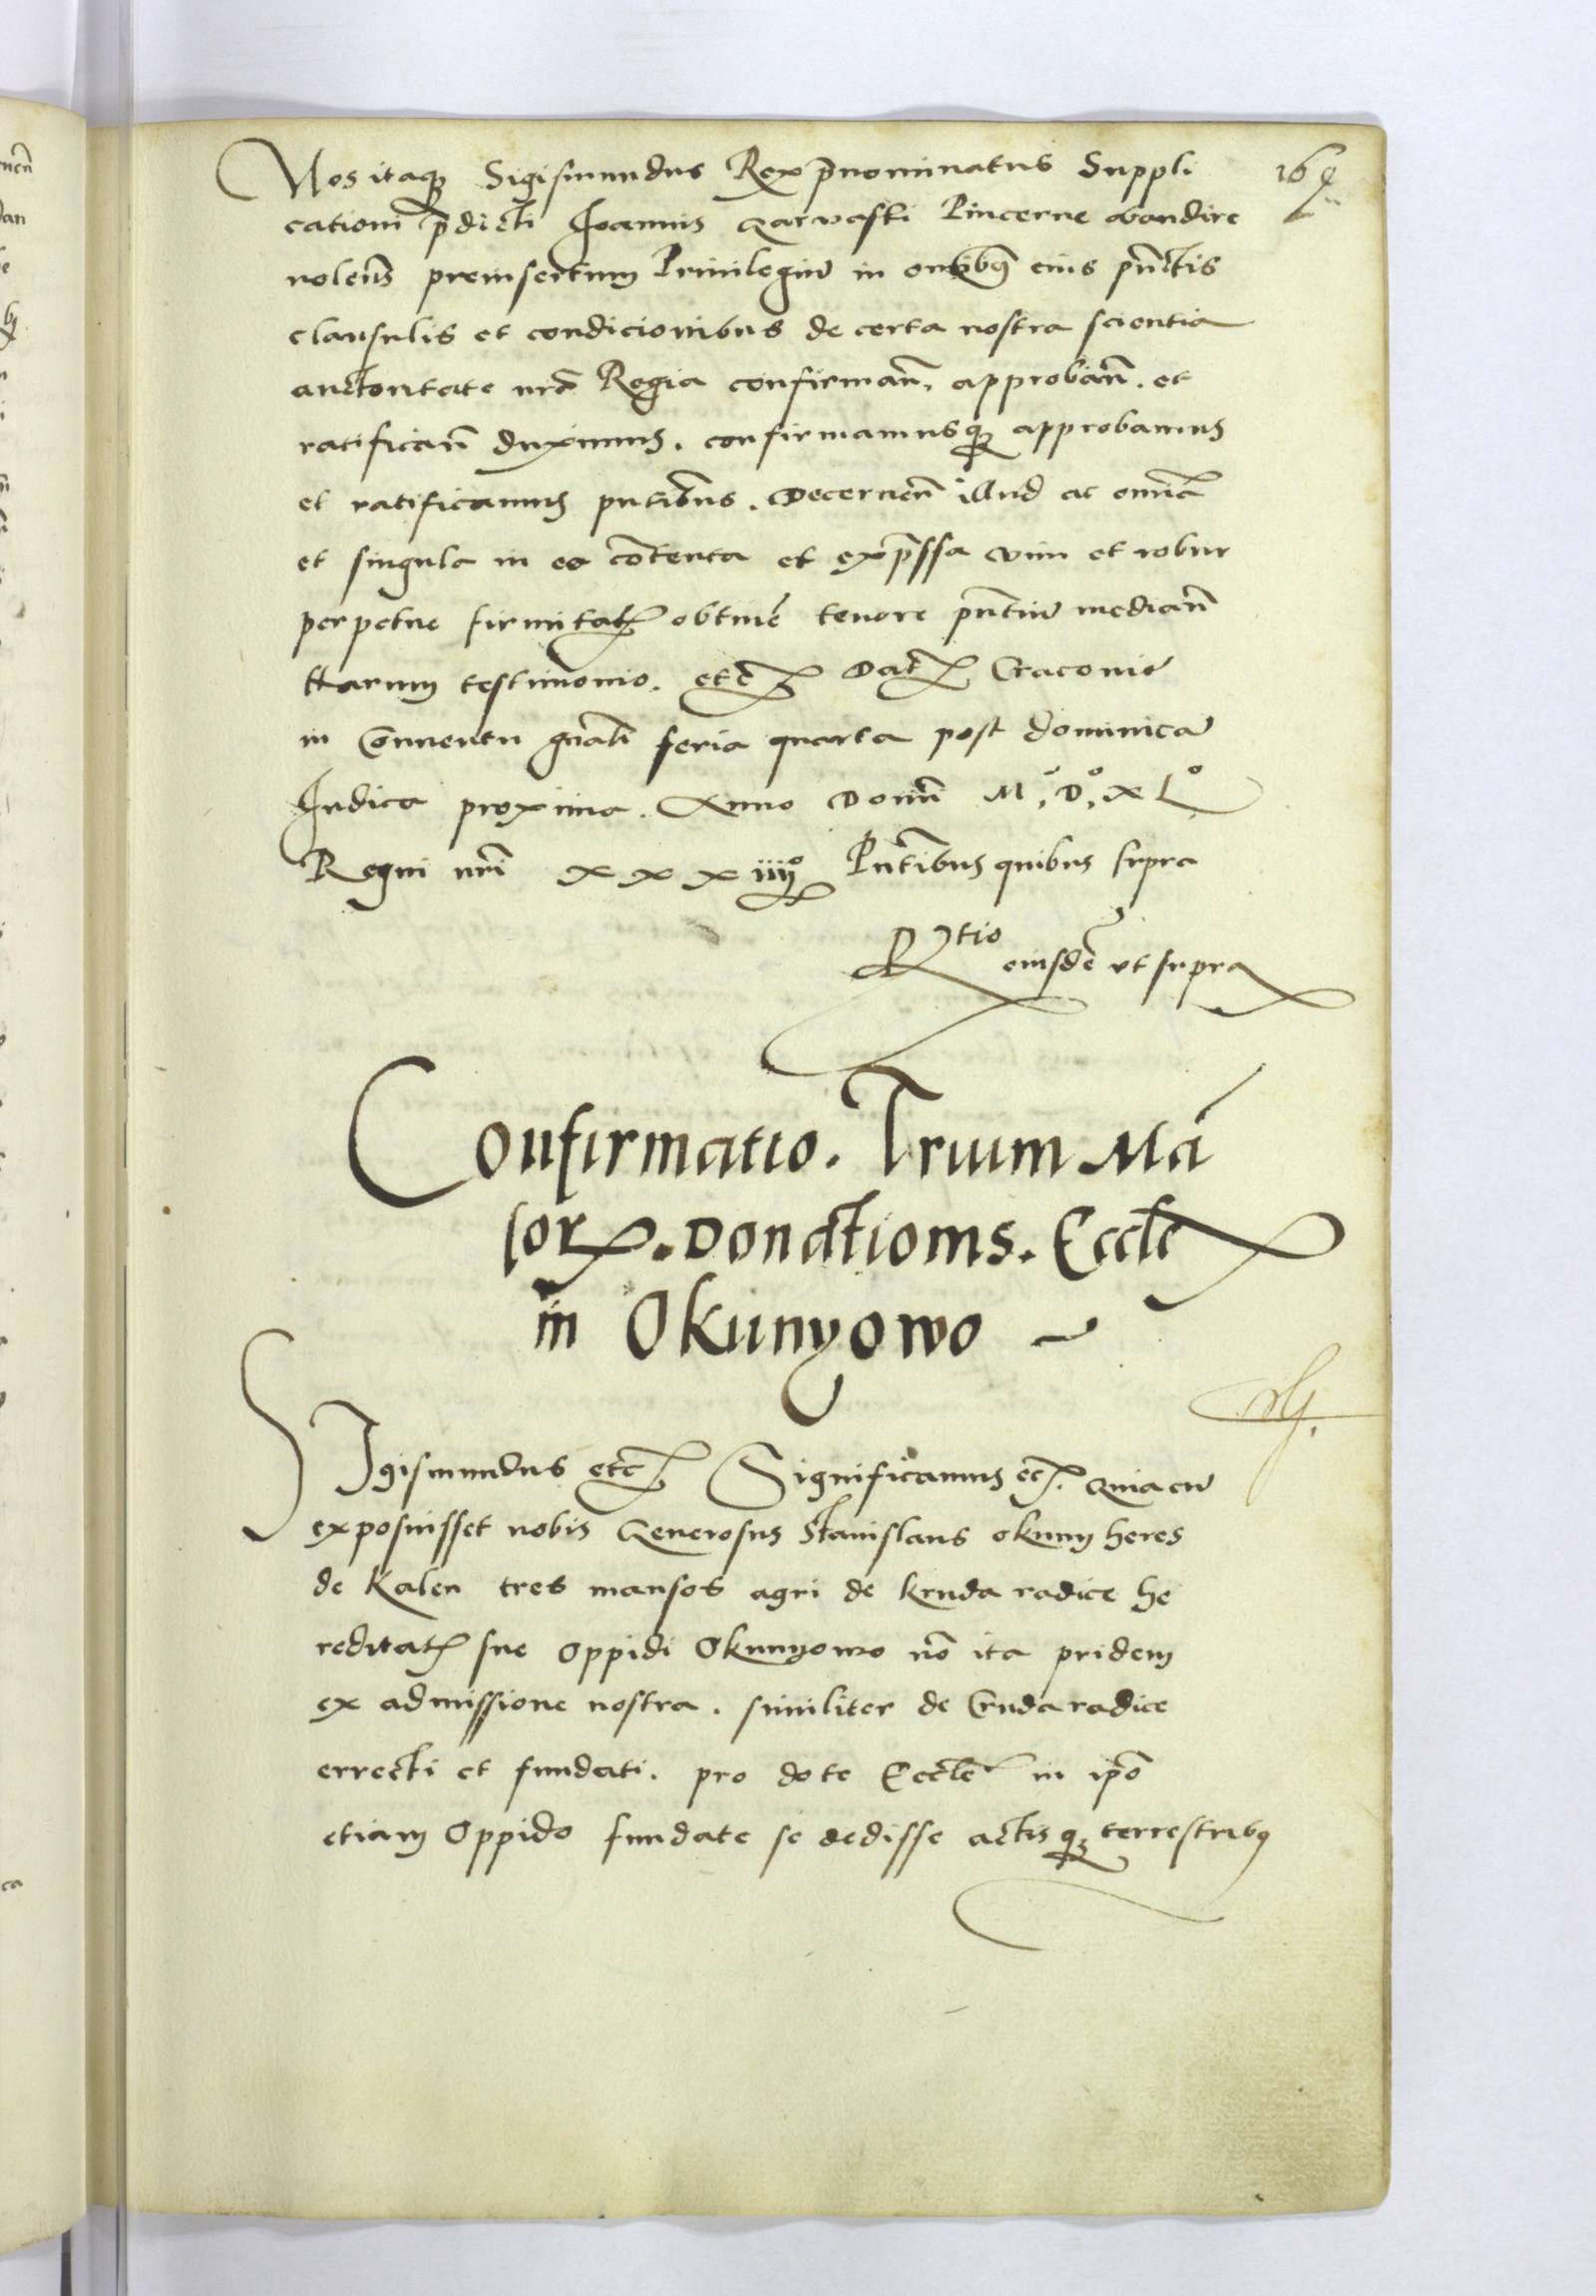 Nos itaq3 Sigismundus Rex p̄nominatus Suppli
cationi p̄dicti Joannis Garvasti Pincerne
volen̄s preinsertum Privilegiū in om̄ibꝰ eius pūctis
clausulis et condicionibus de certa nostra scientia
auctoritate nr̄a Regia confirman̄. approban̄. et
ratifican̄ duximus. confirmamusq3 approbamus
et ratificamus pn̄tibus. Decernen̄ illud ac omnia
et singula in eo cōtenta et exp̄ssa vim et robur
perpetue firmitatꝭ obtinē tenore pn̄tiū median̄
ttarum testimonio. etc̄ Datꝭ Cracovie
in Conventu gn̄ali feria quarta post dominicā
Judica proxima. Anno Domī M°. D°. XL°
Regni nr̄i xxxiiij° Pn̄tibus quibus supra
R̄tio eiusdē ut supra
Confirmatio. Trium Mā
soꝝ. Donationis. Eccłe
in Okunyowo
Sigismundus etc̄ Significamus ec̄. Quia cū
exposuisset nobis Generosus Stanislaus Okuny heres
de Kalen tres mansos agri de kruda radice he
reditatꝭ sue Oppidi Okunyowo nō ita pridem
ex admissione nostra. similiter de Cruda radice
errecti et fundati. pro dote Eccłe in ip̄o
etiam Oppido fundate se dedisse actisq3 terrestribꝰ